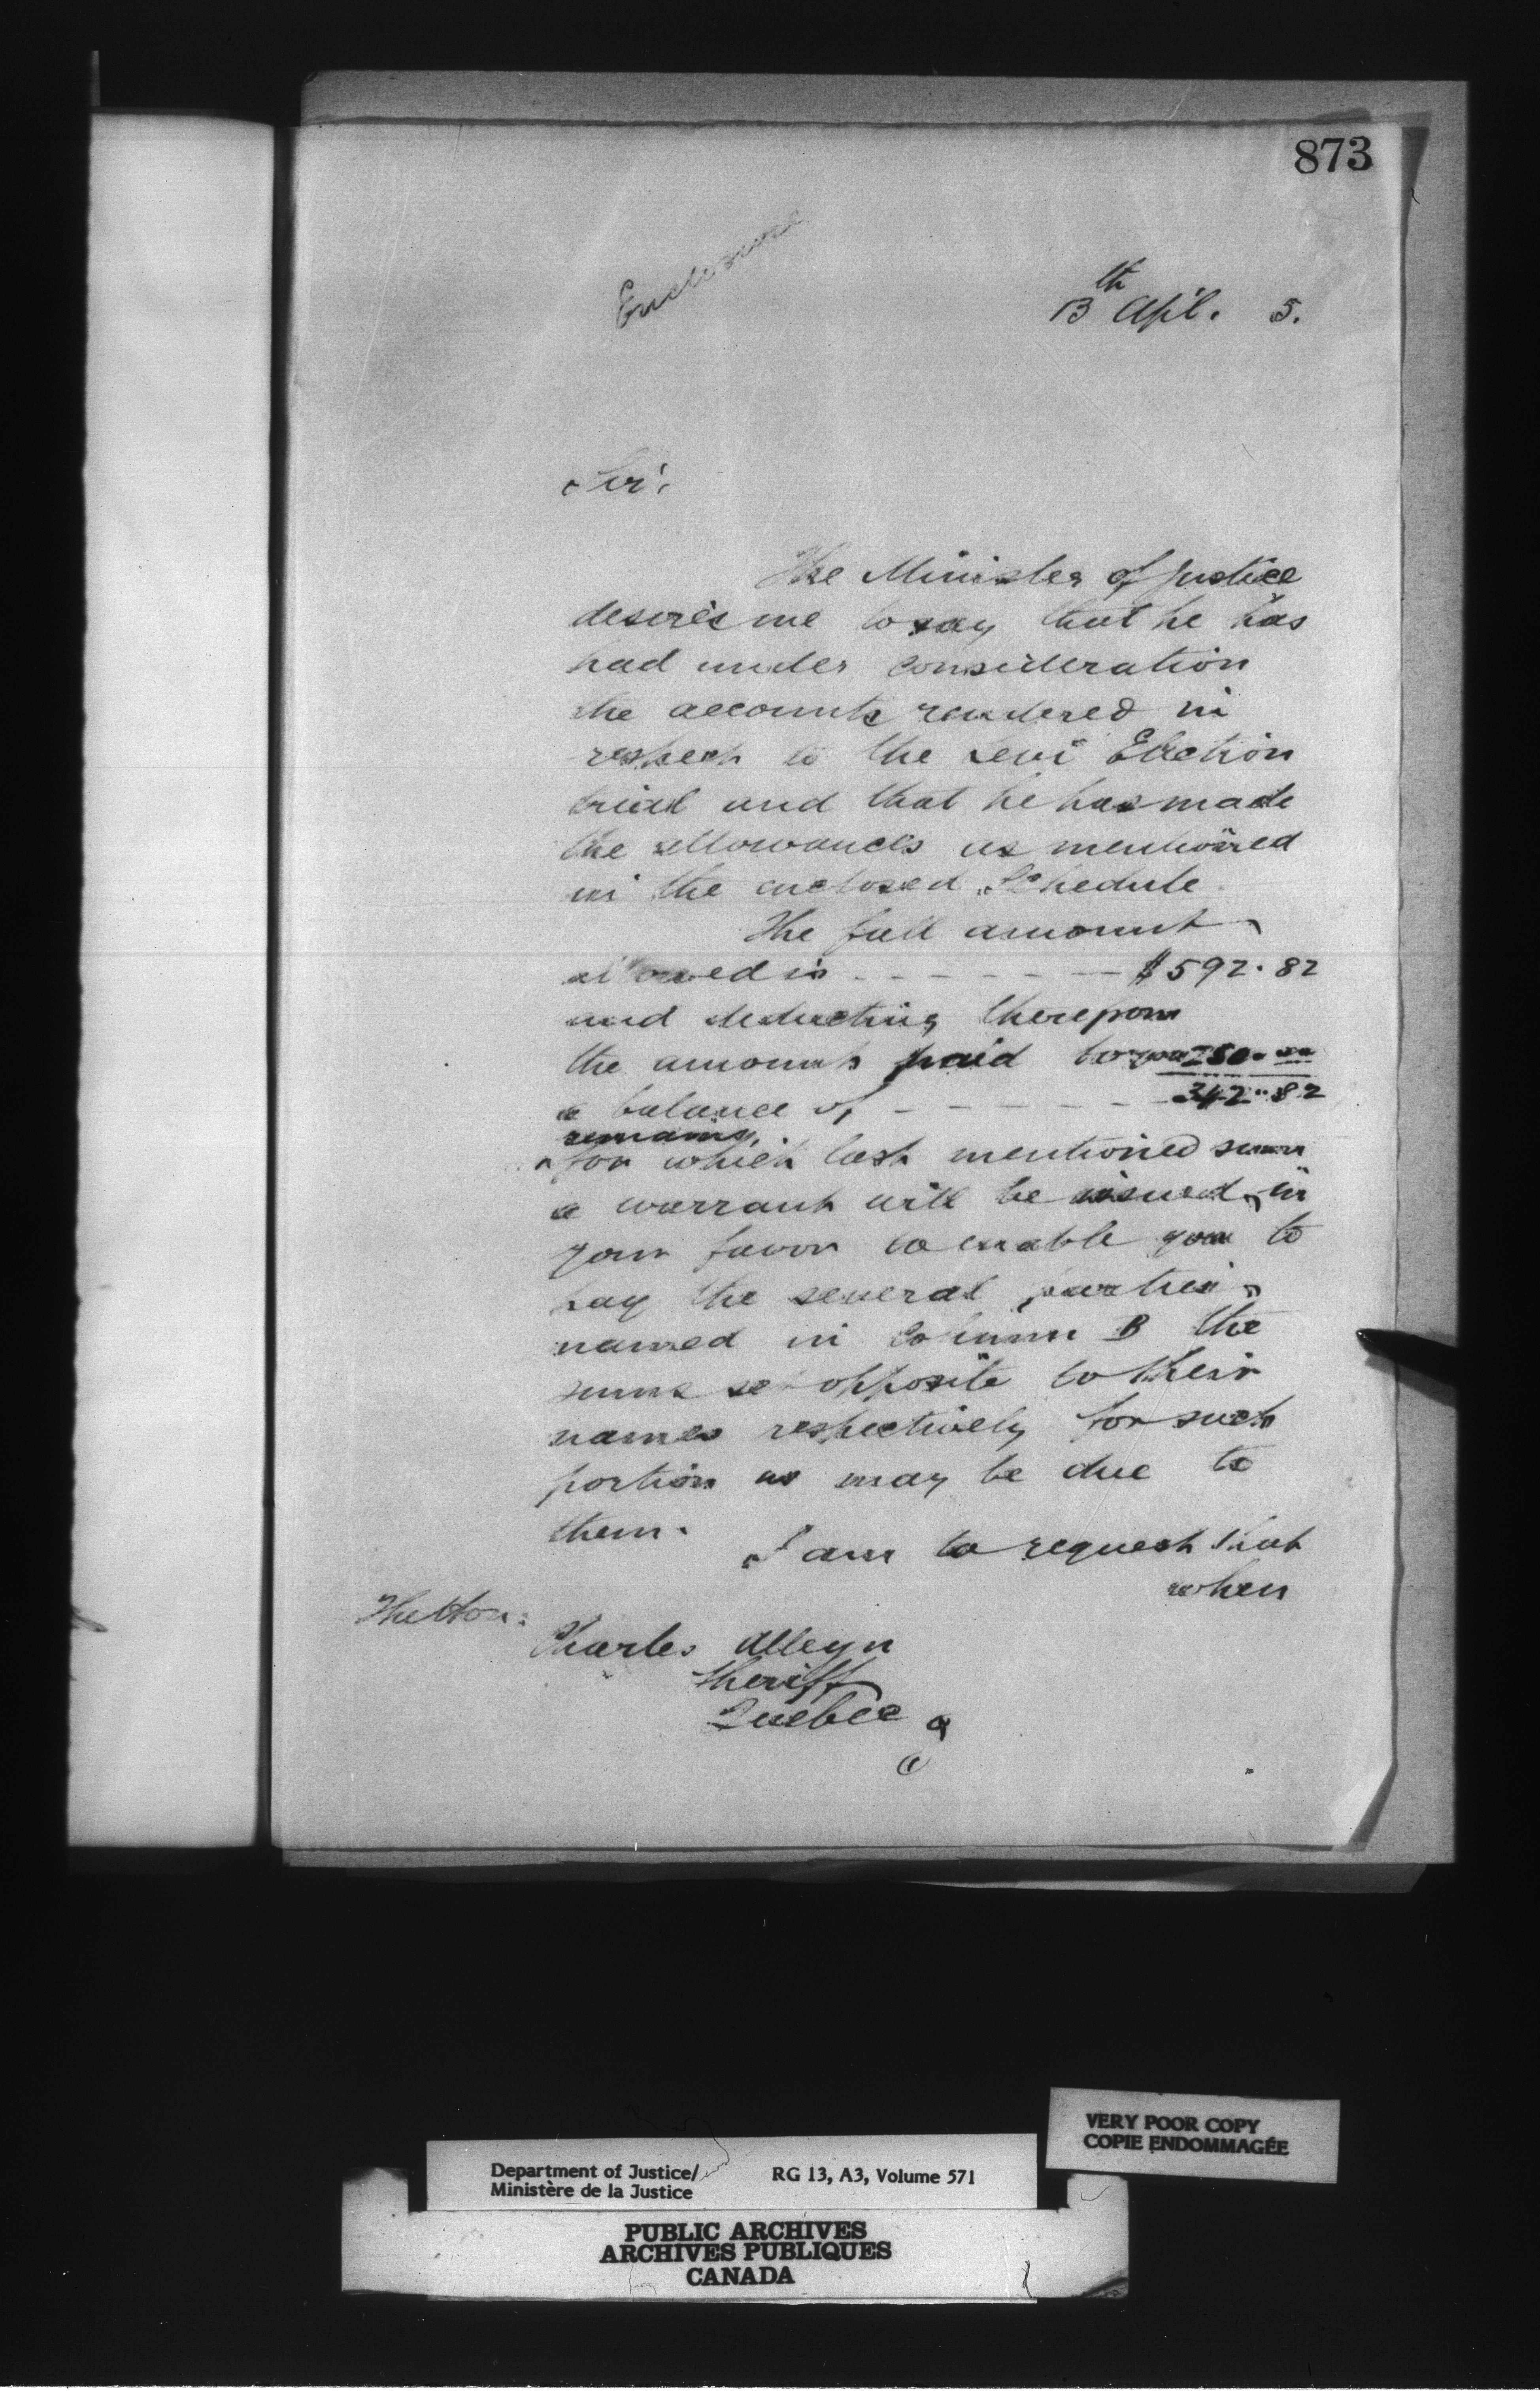 873
Enclosure
13th Apl. 5.
Sir,
The Minister of Justice
desires me to say that he has
had under consideration
the accounts rendered in
respect to the Levi Election
trial and that he has made
the allowances as mentioned
in the enclosed Schedule
The full amount
allowed is - - - - - - $592.82
and deducting therefrom
the amounts paid to you 250.00
a balance of - - - - - - 342.82
remains,
for which last mentioned sum
a warrant will be issued in
your favor to enable you to
pay the several parties
named in Column B the
sums set opposite to their
names respectively for such
portion as may be due to
them.
I am to request that
when
The Hon:
Charles Alleyn
Sheriff
Quebec
VERY POOR COPY
COPIE ENDOMMAGÉE
Department of Justice/ RG 13, A3, Volume 571
Ministère de la Justice
PUBLIC ARCHIVES
ARCHIVES PUBLIQUES
CANADA